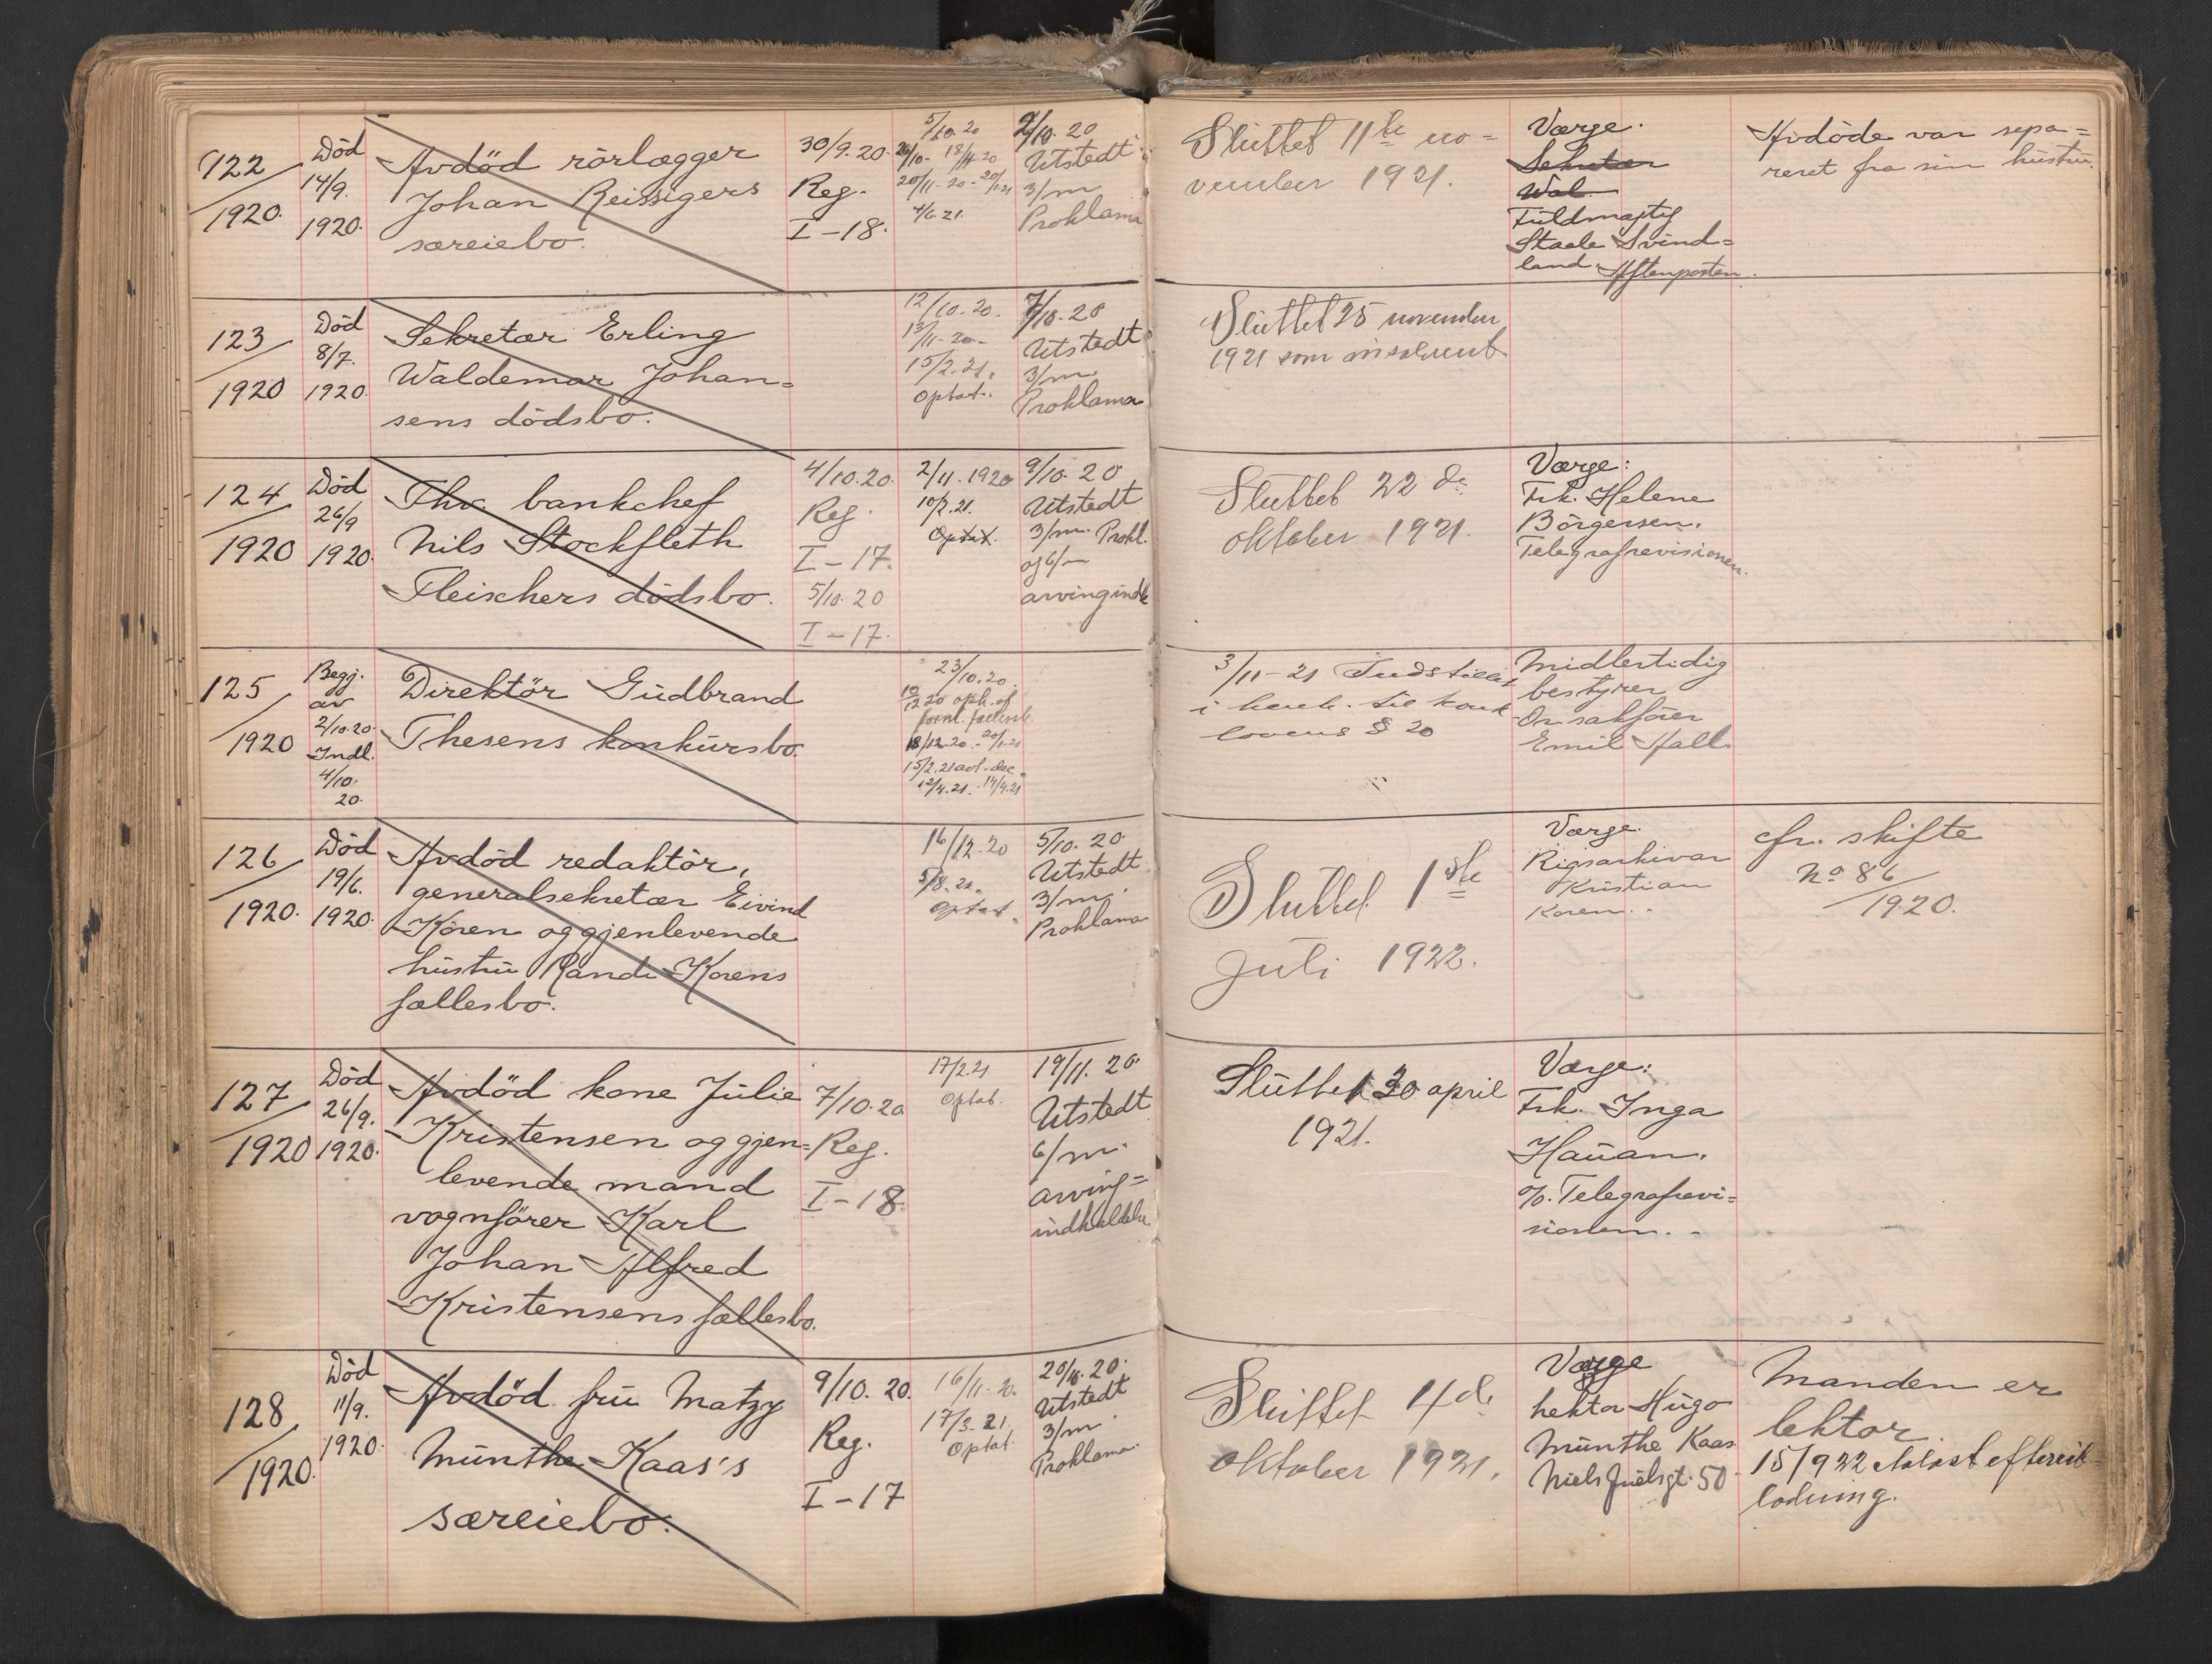 122
1920.
Död
14/9.
1920.
Avdöd rörlægger
Johan Reissigers
særeiebo.
30/9.20.
Reg.
I-18.
5/10.20
26/10- 18/11-20
20/11-20- 20/1-21
4/6 21.
9/10.20
Utstedt
3/m
Proklama
Sluttet 11te no=
vember 1921.
Værge.
Sekretær
Wal
Fuldmægtig
Staale Svind=
land. Aftenposten.
Avdöde var sepa=
reret fra sin hustru.
123
1920
Död
8/7.
1920.
Sekretær Erling
Waldemar Johan=
sens dödsbo.
12/10.20.
13/11-20-
15/2-21.
optat.
7/10.20
Utstedt
3/m.
Proklama
Sluttet 25 november
1921 som insolvent
124
1920
Död
26/9
1920.
Fhv. bankchef
Nils Stockfleth
Fleischers dödsbo.
4/10.20.
Reg.
I-17.
5/10.20
I-17.
2/11.1920
10/2.21.
Optat.
9/10.20
Utstedt
3/m. Prokl.
og 6/m
arvingindk
Sluttet 22de
oktober 1921.
Værge:
Frk. Helene
Börgersen.
Telegrafrevisionen.
125
1920
Begj.
av
2/10.20.
Indl.
4/10.
20.
Direktör Gudbrand
Thesens konkursbo.
23/10.20.
18/12.20 - 20/1.21
12/4.21. 14/4.21
3/11-21 Indstillet
i henh. til konk
lovens § 20
Midlertidig
bestyrer
Orsakförer
Emil Hall
126
1920.
Död
19/6.
1920.
Avdöd redaktör,
generalsekretær Eivind
Koren og gjenlevende
hustru Randi Korens
fællesbo.
16/12.20
5/8.21.
Optat.
5/10.20
Utstedt
3/m.
Proklama
Sluttet 1ste
Juli 1922.
Værge.
Rigsarkivar
Kristian
Koren.
cfr. skifte
No 86
1920.
127
1920
Död
26/9.
1920.
Avdöd kone Julie
Kristensen og gjen=
levende mand
vognförer Karl
Johan Alfred
Kristensens fællesbo.
7/10.20
Reg.
I-18.
17/2.21
Optat.
19/11.20
Utstedt
6/m.
arving=
indkaldelse
Sluttet 30 april
1921.
Værge:
Frk. Inga
Hauan.
o/o. Telegrafrevi=
sionen.
128
1920.
Död
11/9.
1920.
Avdöd fru Matzy
Munthe Kaas's
særeiebo.
9/10.20.
Reg.
I-17
16/11.20.
17/3-21.
Optat.
20/10.20.
Utstedt
3/m.
Proklama.
Sluttet 4de
oktober 1921.
Værge
lektor Hugo
Munthe Kaas.
Niels Juelsgt. 50
Manden er
lektor.
15/9 22
lodning.